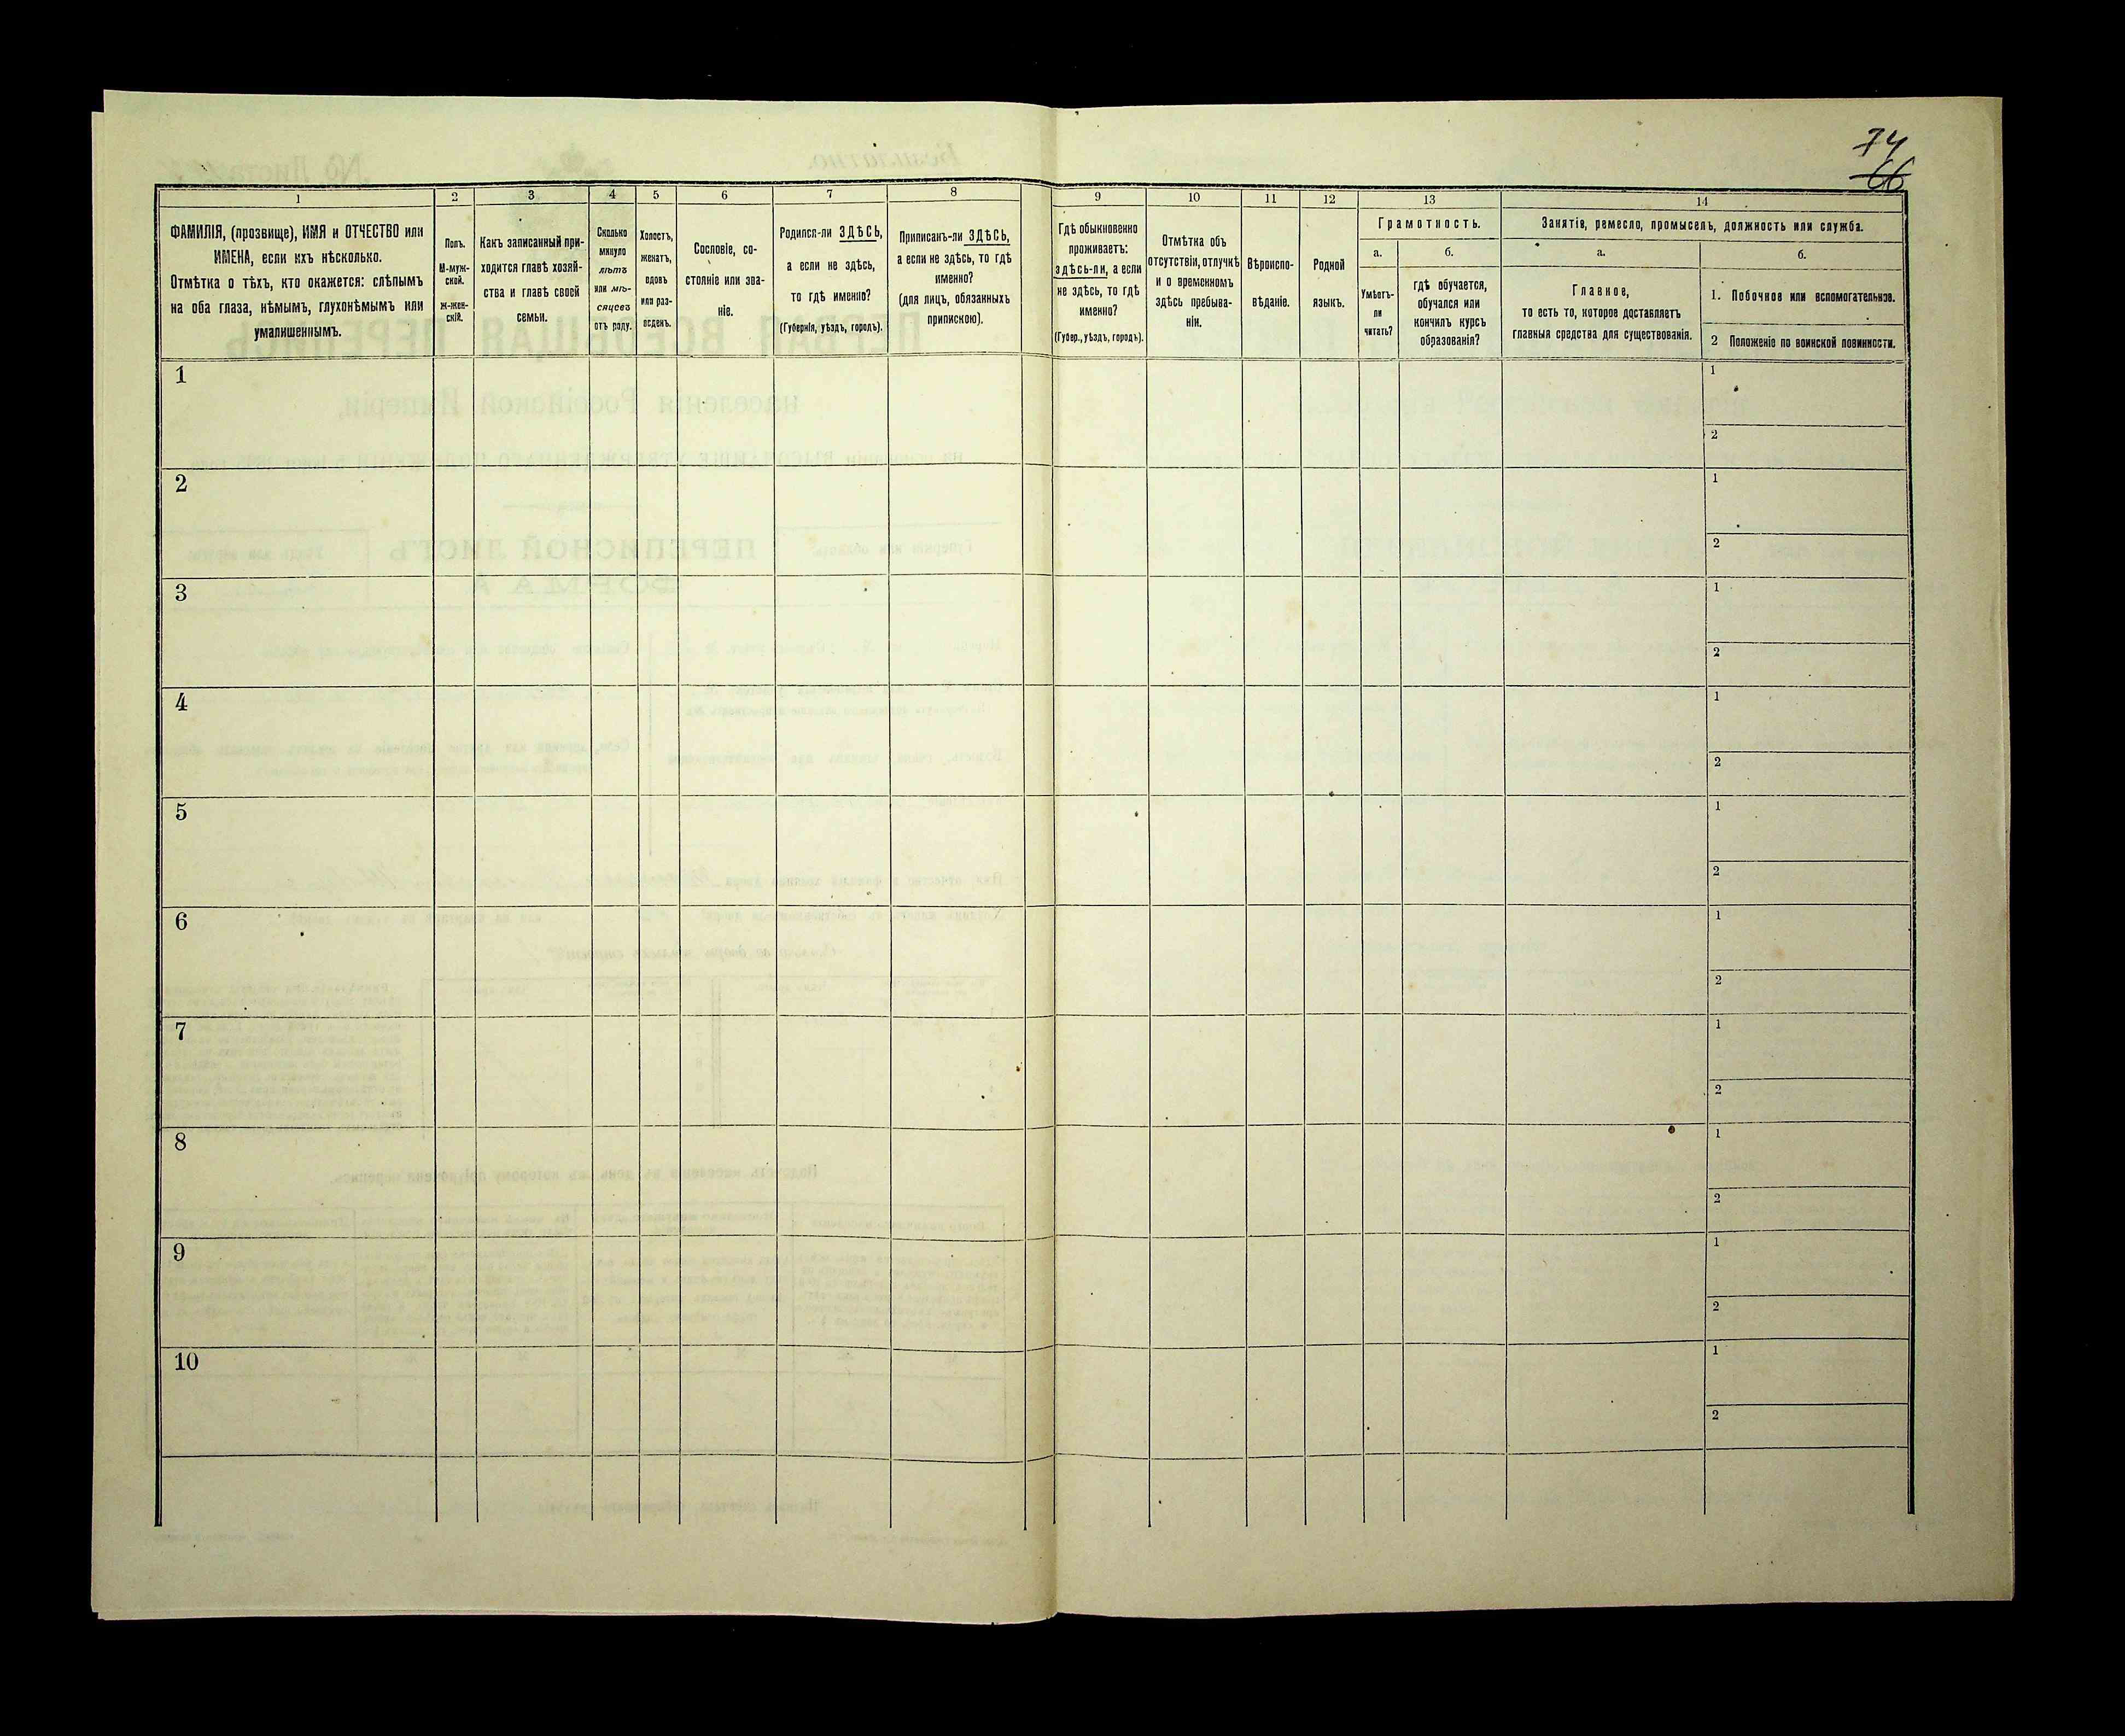 74
66
1
ФАМИЛІЯ, (прозвище), ИМЯ и ОТЧЕСТВО или
ИМЕНА, если ихъ нѣсколько.
Отмѣтка о тѣхъ, кто окажется: слѣпымъ
на оба глаза, нѣмымъ, глухонѣмымъ или
умалишеннымъ.
2
Полъ.
М-муж-
ской.
Ж-жен-
скій.
3
Какъ записанный при-
ходится главѣ хозяй-
ства и главѣ своей
семьи.
4
Сколько
минуло
лѣтъ
или мѣ-
сяцевъ
отъ роду.
5
Холостъ,
женатъ,
вдовъ
или раз-
веденъ.
6
Сословіе, со-
стояніе или зва-
ніе.
7
Родился-ли ЗДѢСЬ,
а если не здѣсь,
то гдѣ именно?
(Губернія, уѣздъ, городъ).
8
Приписанъ-ли ЗДѢСЬ,
а если не здѣсь, то гдѣ
именно?
(для лицъ, обязанныхъ
припискою).
9
Гдѣ обыкновенно
проживаетъ:
здѣсь-ли, а если
не здѣсь, то гдѣ
именно?
(Губер., уѣздъ, городъ).
10
Отмѣтка объ
отсутствіи, отлучкѣ
и о временномъ
здѣсь пребыва-
ніи.
11
Вѣроиспо-
вѣданіе.
12
Родной
языкъ.
13
Грамотность.
а.
Умѣетъ-
ли
читать?
б.
гдѣ обучается,
обучался или
кончилъ курсъ
образованія?
14
Занятіе, ремесло, промыселъ, должность или служба.
а.
Главное,
то есть то, которое доставляетъ
главныя средства для существованія.
б.
1. Побочное или вспомогательное.
2 Положеніе по воинской повинности.
1
1
2
2
1
2
3
1
2
4
1
2
5
1
2
6
1
2
7
1
2
8
1
2
9
1
2
10
1
2